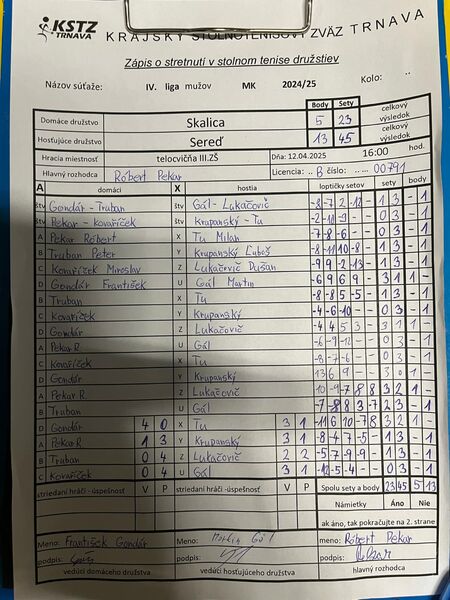 KSTZ
TRNAVA
KRAJSKÝ STOLNOTENISOVÝ ZVÄZ TRNAVA
Zápis o stretnutí v stolnom tenise družstiev
Názov súťaže: IV. liga mužov MK 2024/25 Kolo: ..
Body Sety celkový výsledok
Domáce družstvo Skalica 5 23
Hosťujúce družstvo Sereď 13 45 celkový výsledok
Hracia miestnosť telocvičňa III.ZŠ Dňa: 12.04.2025 16:00 hod.
Hlavný rozhodca Róbert Pekar Licencia: .. B číslo: ... 00791
A domáci X hostia loptičky setov sety body
štv Gondár - Truban štv Gál - Lukačovič -8 -7 2 -12 - 1 3 - 1
štv Pekar - Kovaříček štv Krupanský - Tu -2 -10 -9 - - 0 3 - 1
A Pekar Róbert X Tu Milan -7 -8 -6 - - 1 3 - 1
B Truban Peter Y Krupanský Ľuboš -8 -11 10 -8 - 1 3 - 1
C Kovaříček Miroslav Z Lukačovič Dušan -9 9 -2 -13 - 1 3 - 1
D Gondár František U Gál Martin -6 9 6 9 - 3 1 1 -
B Truban X Tu -8 -8 5 -5 - 1 3 - 1
C Kovaříček Y Krupanský -4 -6 -10 - - 0 3 - 1
D Gondár Z Lukačovič -4 4 5 3 - 3 1 1 -
A Pekar R. U Gál -6 -9 -12 - - 0 3 - 1
C Kovaříček X Tu -8 -7 -6 - - 0 3 - 1
D Gondár Y Krupanský 13 6 9 - - 3 0 1 -
A Pekar R. Z Lukačovič 10 -9 -7 8 8 3 2 1 -
B Truban U Gál -7 -8 8 3 -7 2 3 - 1
D Gondár 4 0 X Tu 3 1 -11 6 10 -7 8 3 2 1 -
A Pekar R. 1 3 Y Krupanský 3 1 -8 -4 7 -5 - 1 3 - 1
B Truban 0 4 Z Lukačovič 2 2 -5 -7 -9 - - 0 3 - 1
C Kovaříček 0 4 U Gál 3 1 -12 -5 -4 - - 0 3 - 1
striedaní hráči - úspešnosť V P striedaní hráči - úspešnosť V P Spolu sety a body 23 45 5 13
Námietky Áno Nie
ak áno, tak pokračujte na 2. strane
Meno: František Gondár Meno: Martin Gál meno: Róbert Pekar
podpis: podpis: podpis:
vedúci domáceho družstva vedúci hosťujúceho družstva hlavný rozhodca